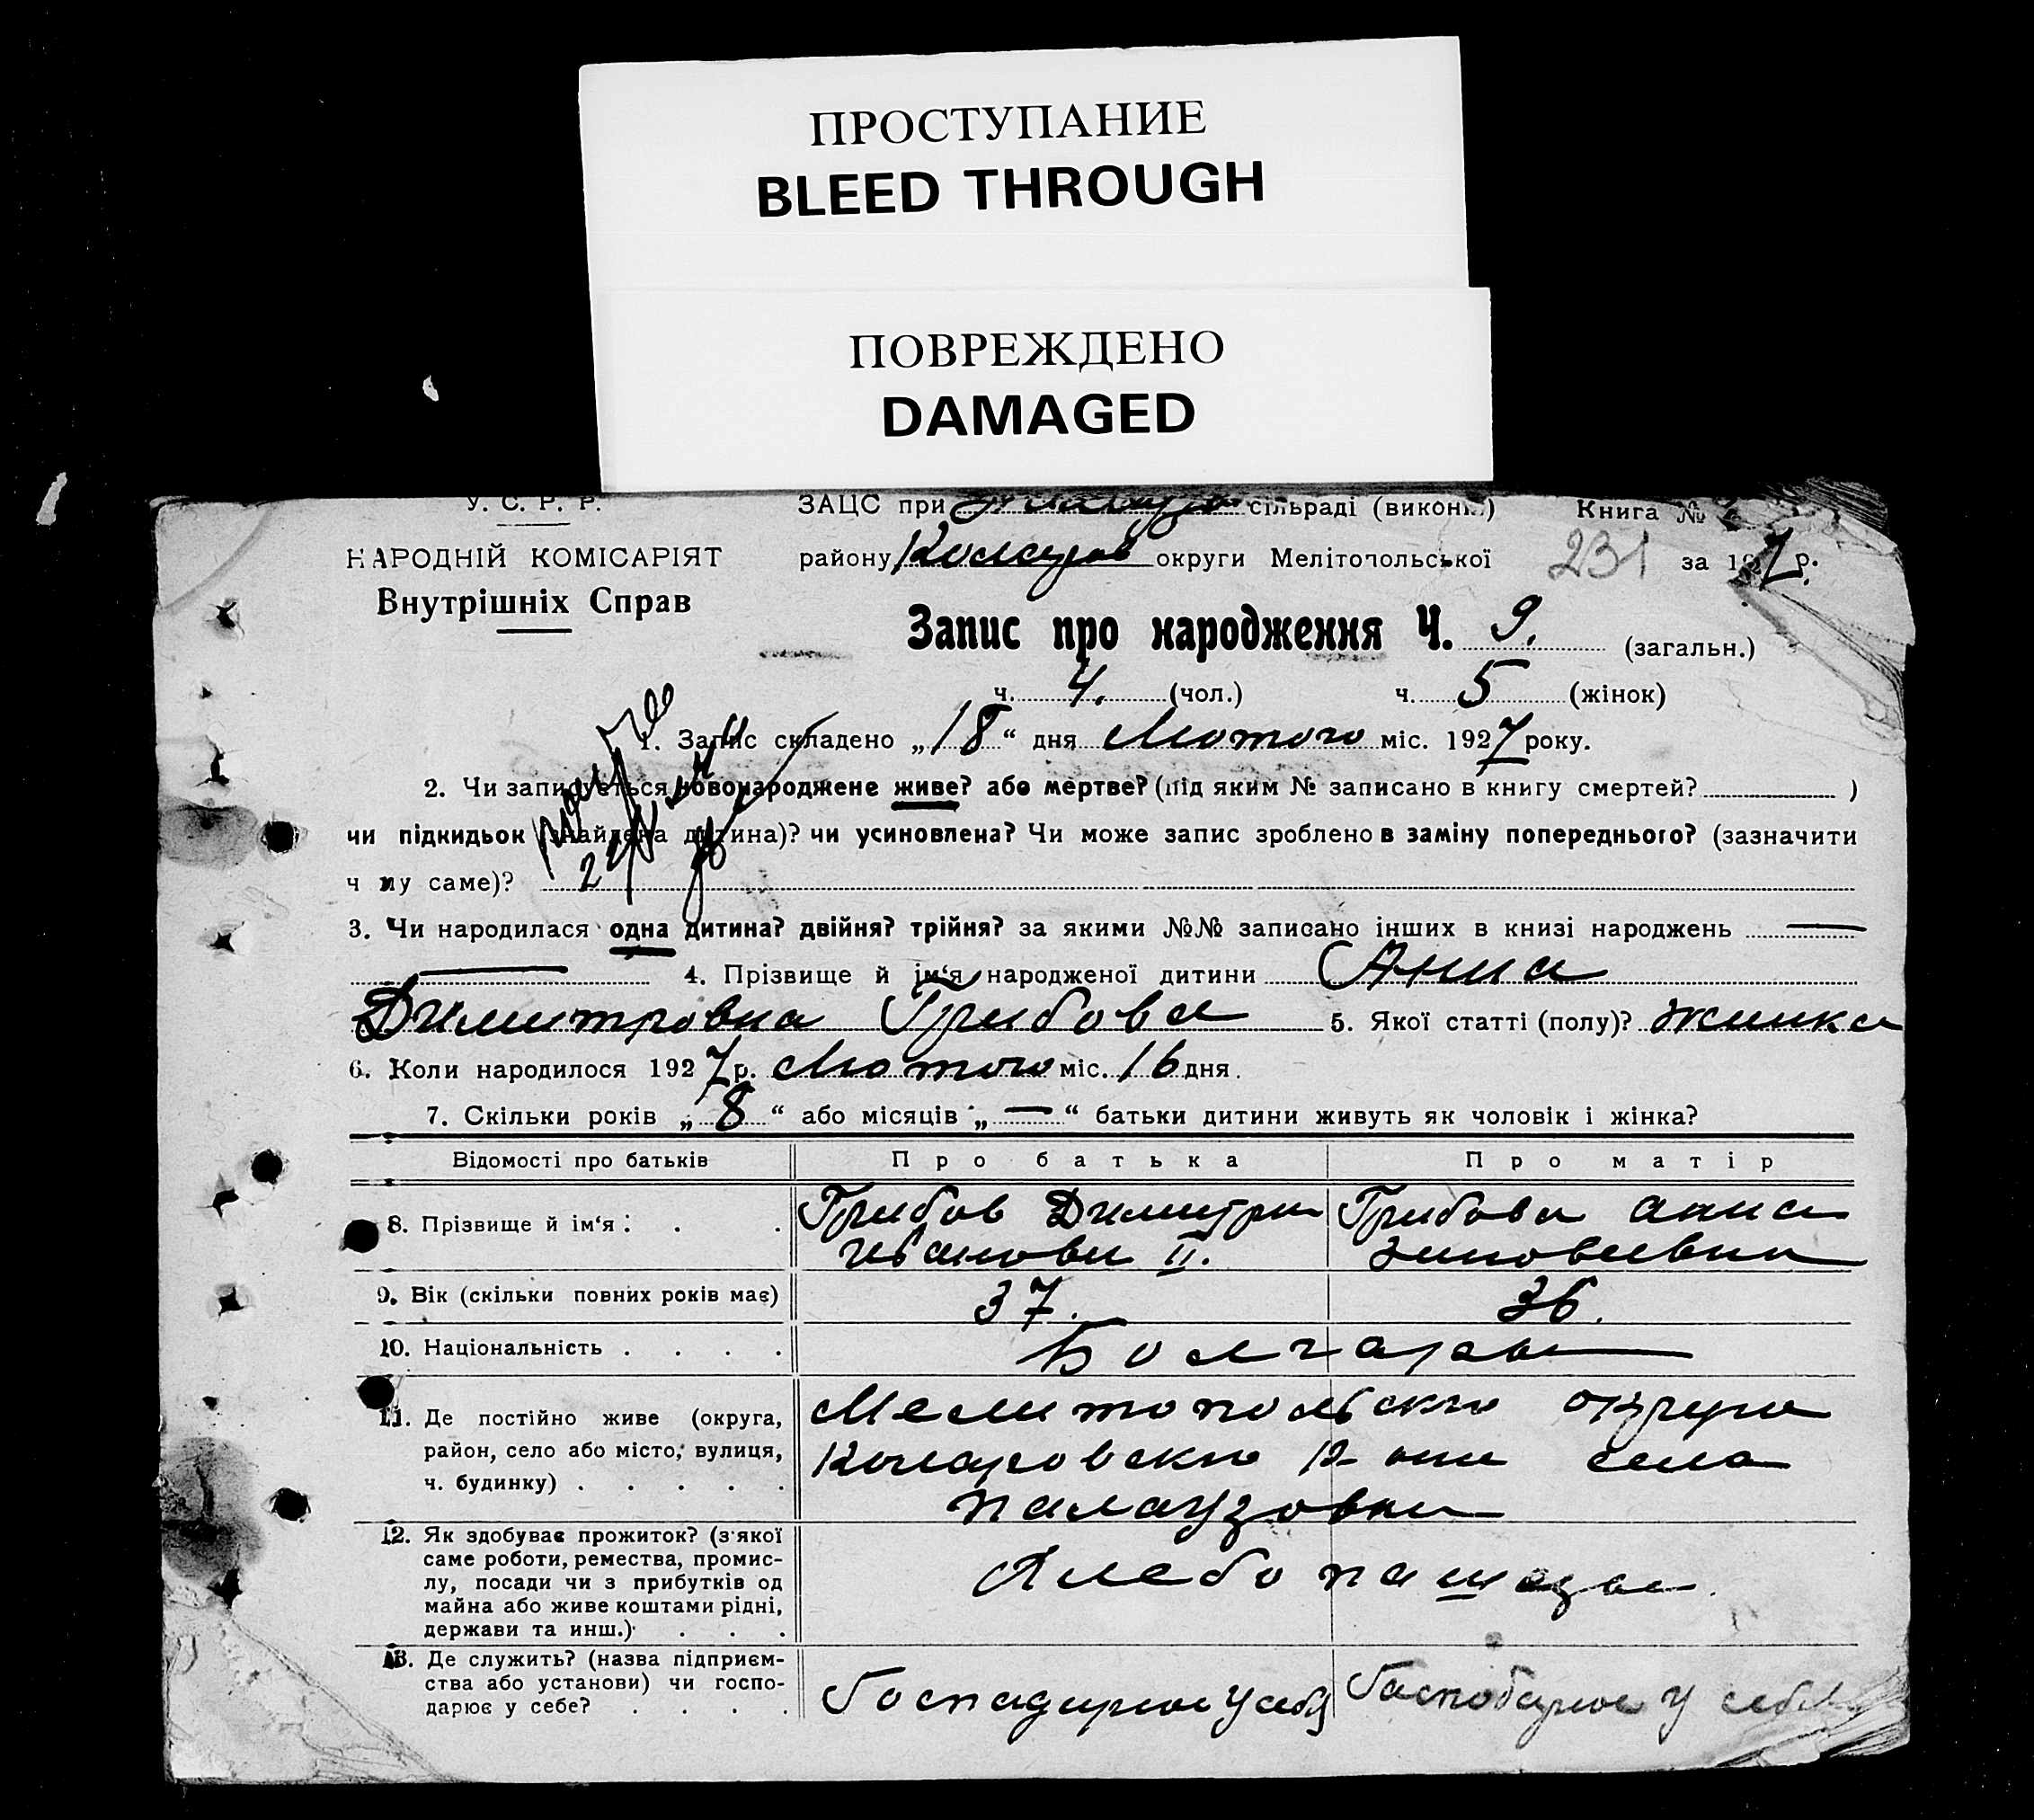 ПРОСТУПАНИЕ
BLEED THROUGH
ПОВРЕЖДЕНО
DAMAGED
У. С. Р. Р.
ЗАЦС при сільраді (виконк.) Книга №
НАРОДНІЙ КОМІСАРІЯТ
району Коларов округи Мелітопольської 231 за 1927 р.
Внутрішніх Справ
Запис про народження Ч. 9. (загальн.)
ч. 4. (чол.) ч. 5 (жінок)
1. Запис складено „18“ дня Лютого міс. 1927 року.
2. Чи записується новонароджене живе? або мертве? (під яким № записано в книгу смертей? )
чи підкидьок (знайдена дитина)? чи усиновлена? Чи може запис зроблено в заміну попереднього? (зазначити
ч му саме)?
3. Чи народилася одна дитина? двійня? трійня? за якими №№ записано інших в книзі народжень —
— 4. Прізвище й ім‘я народженої дитини Анна
Димитровна Грибова 5. Якої статті (полу)? жинка
6. Коли народилося 1927 р. Лютого міс. 16 дня.
7. Скільки років „8“ або місяців „—“ батьки дитини живуть як чоловік і жінка?
Відомості про батьків Про батька Про матір
8. Прізвище й ім‘я . . . Грибов Димитри Грибова Анна
Иванови II. Зиновиевна
9. Вік (скільки повних років має) 37. 36.
10. Національність . . . . Болгары
11. Де постійно живе (округа, Мелитопольского округа
район, село або місто, вулиця, Коларовского р-она села
ч. будинку) . . . . . Палаузовки
12. Як здобуває прожиток? (з'якої
саме роботи, ремества, промис-
лу, посади чи з прибутків од Хлебопашцы
майна або живе коштами рідні,
держави та инш.) . . .
13. Де служить? (назва підприєм-
ства або установи) чи госпо-
дарює у себе? . . . . Господарює у себя Господарює у себя